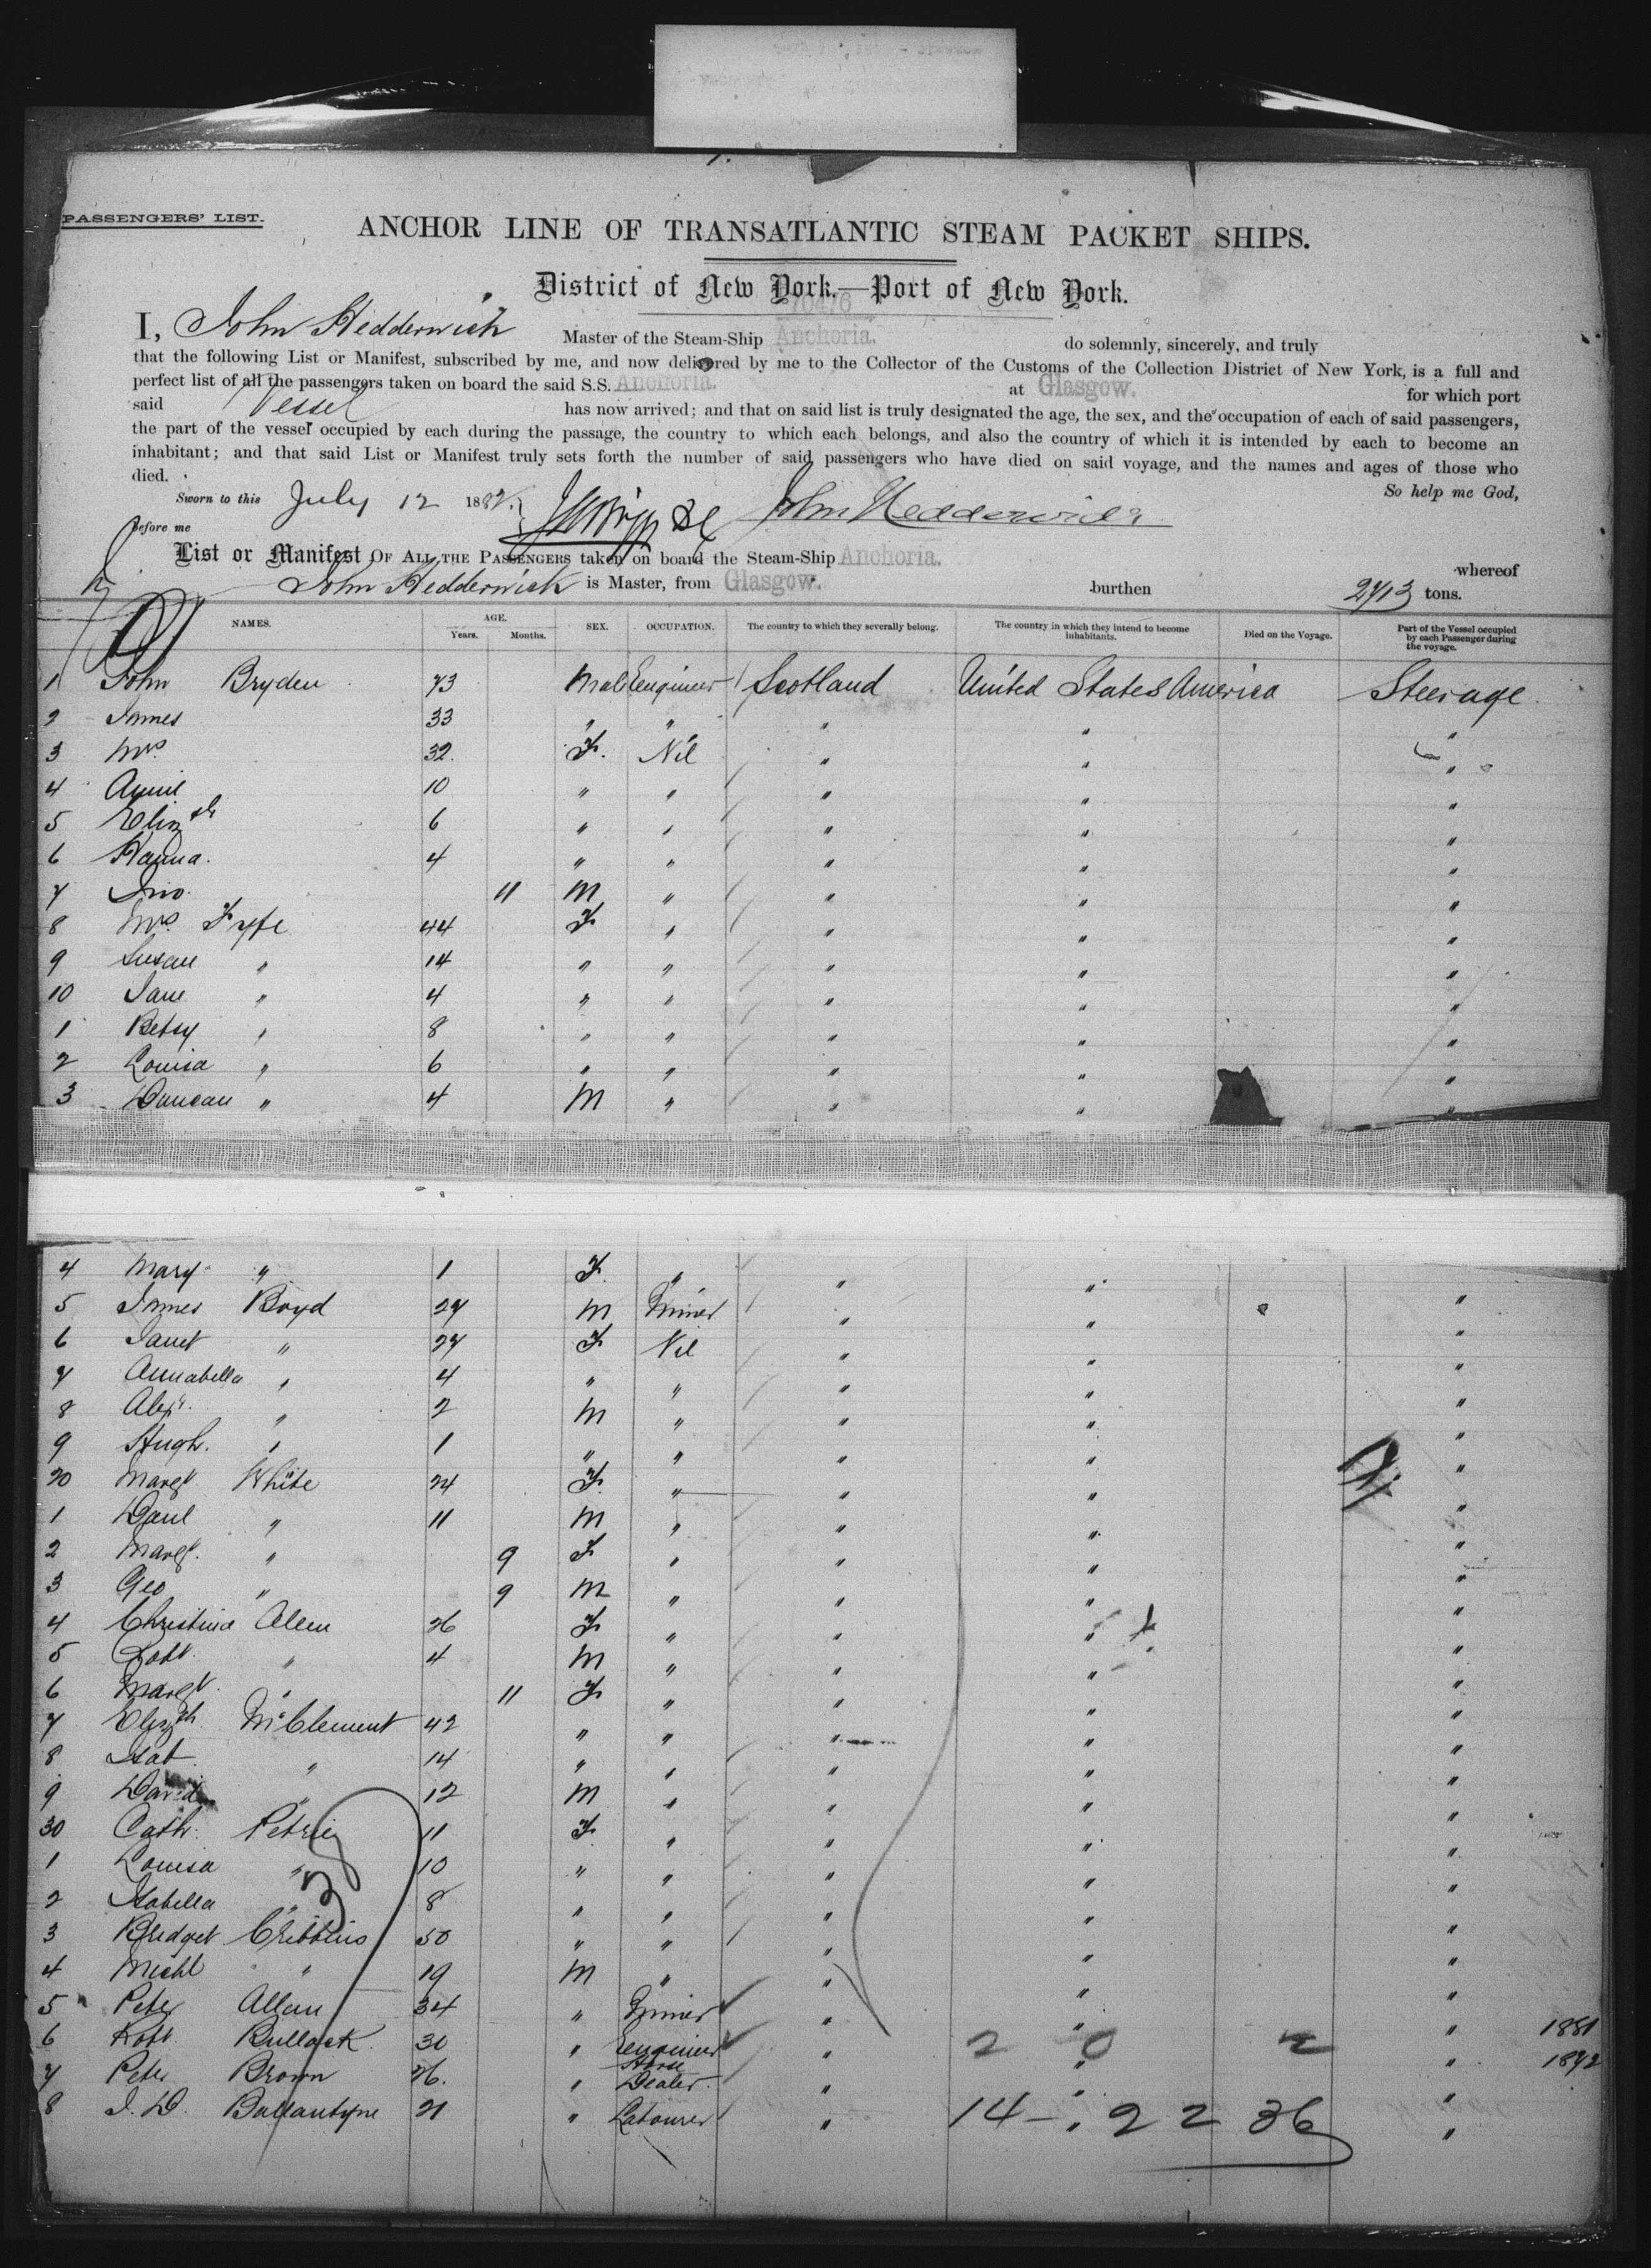 PASSENGERS' LIST.
ANCHOR LINE OF TRANSATLANTIC STEAM PACKET SHIPS.
District of New York.—Port of New York.
I, John Hedderwick Master of the Steam-Ship Anchoria. do solemnly, sincerely, and truly
that the following List or Manifest, subscribed by me, and now delivered by me to the Collector of the Customs of the Collection District of New York, is a full and
perfect list of all the passengers taken on board the said S.S. Anchoria. at Glasgow. for which port
said Vessel has now arrived; and that on said list is truly designated the age, the sex, and the occupation of each of said passengers,
the part of the vessel occupied by each during the passage, the country to which each belongs, and also the country of which it is intended by each to become an
inhabitant; and that said List or Manifest truly sets forth the number of said passengers who have died on said voyage, and the names and ages of those who
died. So help me God,
Sworn to this July 12 1882. John Hedderwick
Before me
List or Manifest OF ALL THE PASSENGERS taken on board the Steam-Ship Anchoria. whereof
John Hedderwick is Master, from Glasgow. burthen 2713 tons.
NAMES. AGE. Years. Months. SEX. OCCUPATION. The country to which they severally belong. The country in which they intend to become inhabitants. Died on the Voyage. Part of the Vessel occupied by each Passenger during the voyage.
1 John Bryden 73 Male Engineer Scotland United States America Steerage
2 James 33 " " " " "
3 Mrs 32 F. Nil " " "
4 10 " " " " "
5 Elizth 6 " " " " "
6 Hanna. 4 " " " " "
7 Jno. 11 M " " " "
8 Mrs. Fyfe 44 F " " " "
9 Susan " 14 " " " " "
10 Jane " 4 " " " " "
1 Betsy " 8 " " " " "
2 Louisa " 6 " " " " "
3 Duncan " 4 M " " " "
4 Mary " 1 F. " " " "
5 James Boyd 27 M Miner " " "
6 Janet " 27 F Nil " " "
7 Annabella " 4 " " " " "
8 Alexr. " 2 M " " " "
9 Hugh. " 1 " " " " "
20 Margt White 24 F. " " " "
1 Danl " 11 M " " " "
2 Margt. " 9 F " " " "
3 Geo " 9 M " " " "
4 Christina Allen 26 F " " " "
5 Robt. " 4 M " " " "
6 Margt. " 11 F " " " "
7 Elizth McClement 42 " " " " "
8 Isab " 14 " " " " "
9 David " 12 M " " " "
30 Cath. Petrie 11 F " " " "
1 Louisa " 10 " " " " "
2 Isabella " 8 " " " " "
3 Bridget Cribbins 50 " " " " "
4 Michl " 19 M " " " "
5 Peter Allan 34 " Miner " " "
6 Robt Bullock 30 " Engineer " " " 1881
7 Peter Brown 26. " Horse Dealer. " " " 1872
8 J. D. Ballantyne 21 " Labourer " " "
38
2 0 2
14 - 22 36